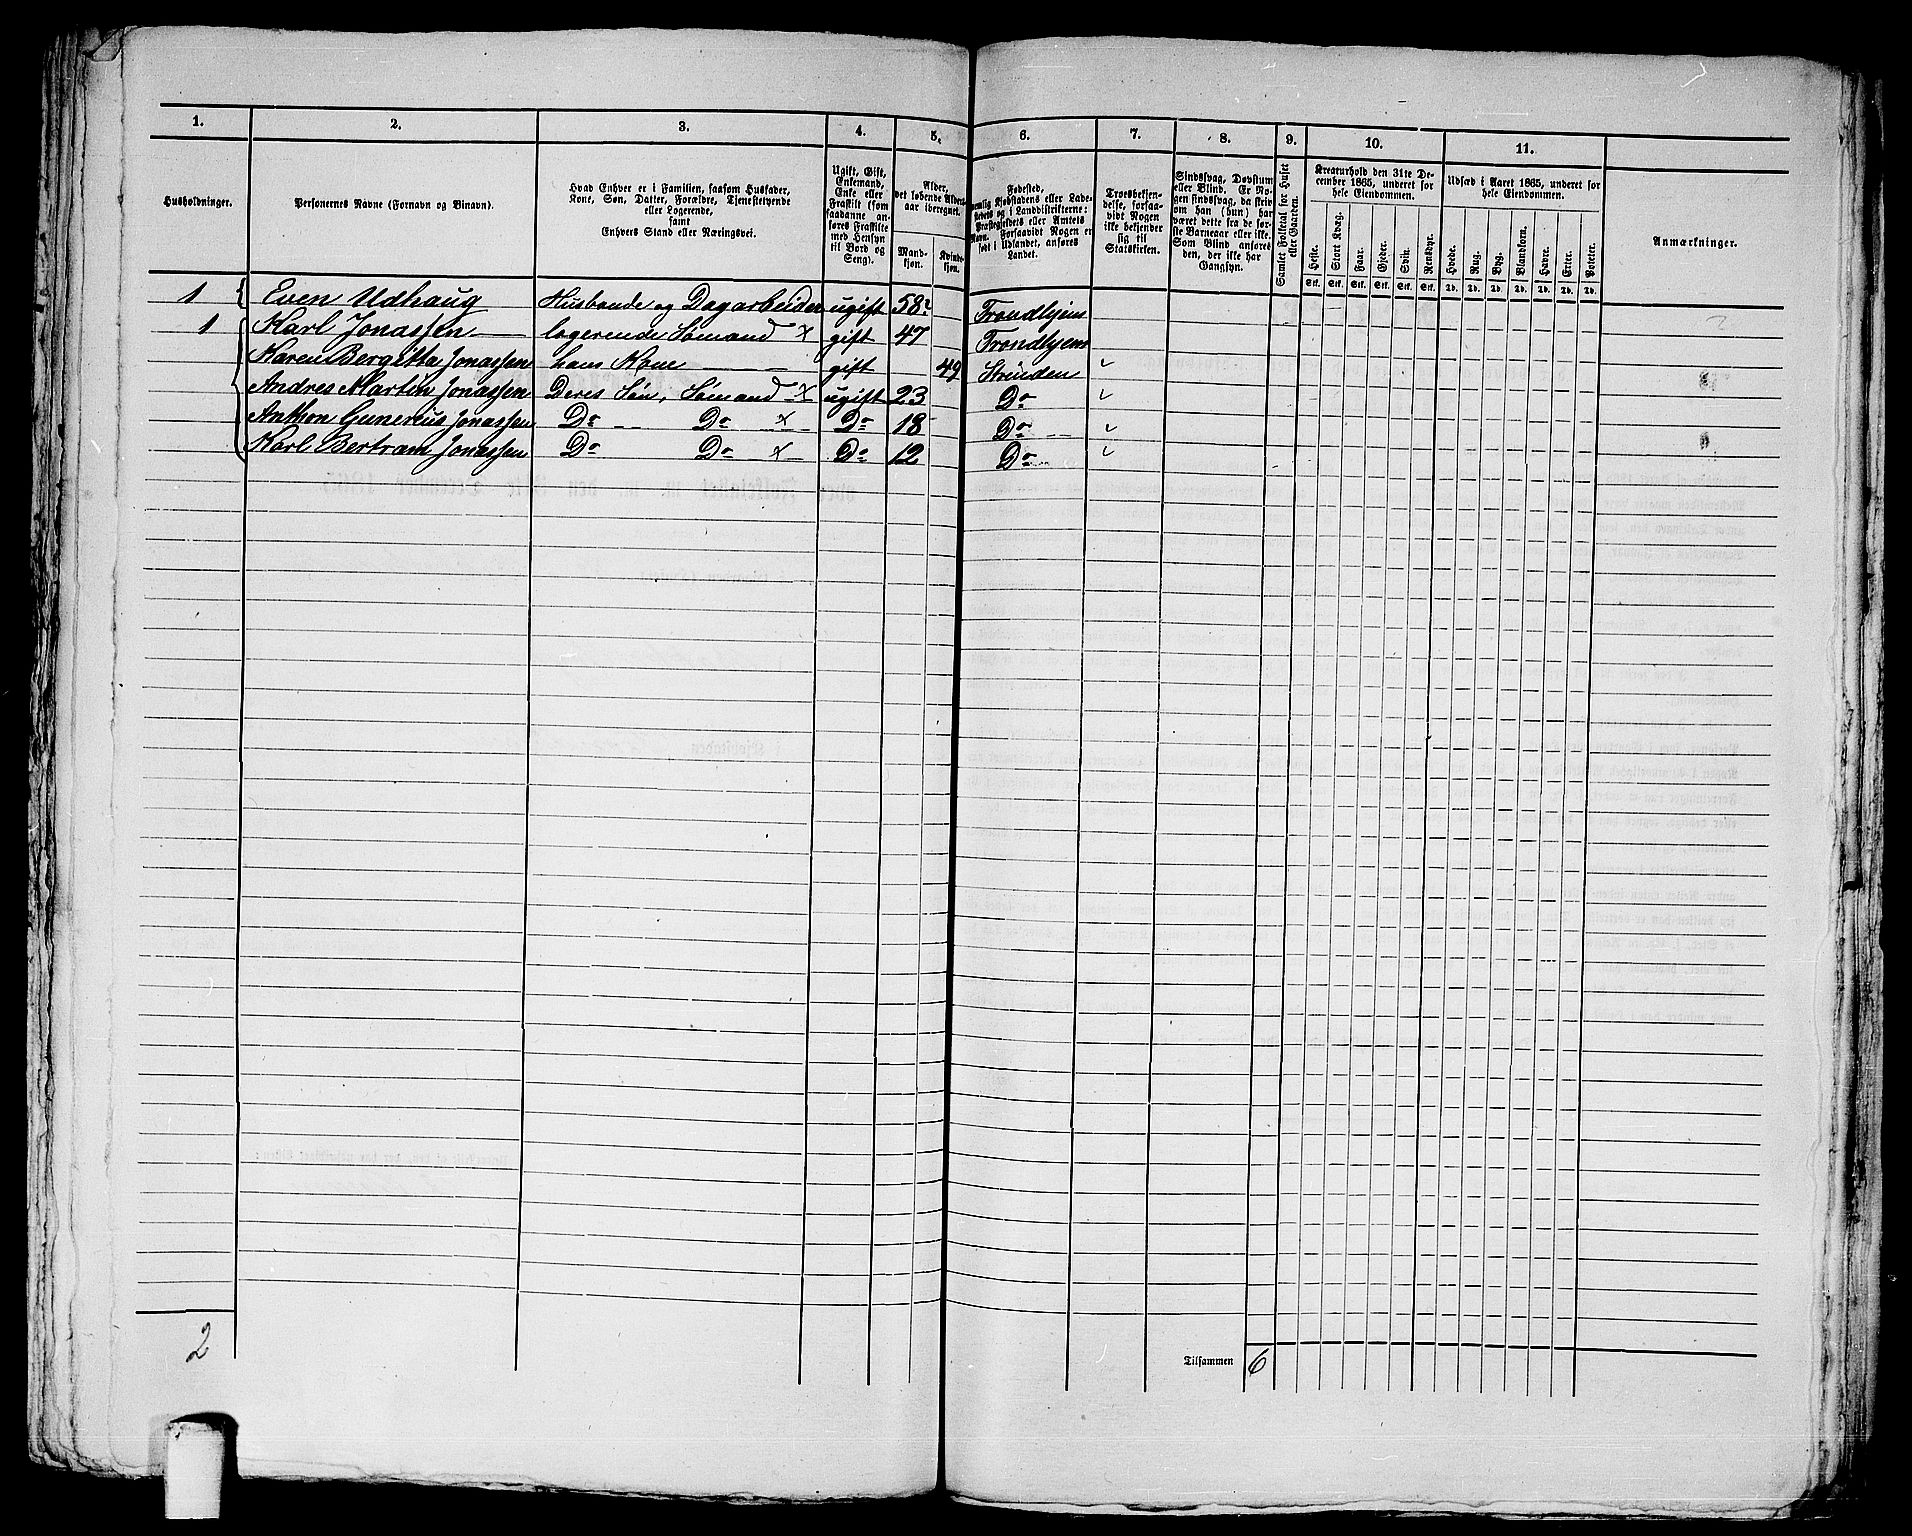 1. 2. 3. 4. 5. 6. 7. 8. 9. 10. 11.
Husholdninger.
Personernes Navne (Fornavn og Binavn).
Hvad Enhver er i Familien, saasom Husfader,
Kone, Søn, Datter, Forældre, Tjenestetyende
eller Logerende,
samt
Enhvers Stand eller Næringsvei.
Ugift, Gift,
Enkemand,
Enke eller
Fraskilt (som
saadanne an-
føres Fraskilte
med Hensyn
til Bord og
Seng).
Alder,
det løbende Alders-
aar iberegnet.
Mand-
kjøn.
Kvinde-
kjøn.
Fødested,
Navn. Forsaavidt Nogen er
født i Udlandet, anføres
Landet.
Troesbekjen-
delse, forsaa-
vidt Nogen
ikke bekjender
sig til
Statskirken.
Sindssvag, Døvstum
eller Blind. Er No-
gen sindssvag, da skriv
om han (hun) har
været dette fra de før-
ste Barneaar eller ikke.
Som Blind anføres
den, der ikke har
Gangsyn.
Samlet Folketal for Huset
eller Gaarden.
Kreaturhold den 31te De-
cember 1865, underet for
hele Eiendommen.
Heste. Stort Kvæg. Faar. Gjeder. Svin. Rensdyr.
Stk. Stk. Stk. Stk. Stk. Stk.
Udsæd i Aaret 1865, underet for
hele Eiendommen.
Hvede. Rug. Byg. Blandkorn. Havre. Erter. Poteter.
Td. Td. Td. Td. Td. Td. Td.
Anmærkninger.
1 Even Udhaug Husbonde og Dagarbeider ugift 58 Trondhjem
1 Karl Jonassen logerende Sømand x gift 47 Trondhjem
Karen Bergitta Jonassen hans Kone gift 49 Strinden
Andres Martin Jonassen Deres Søn, Sømand x ugift 23 Do
Anthon Gunerius Jonassen Do Do x Do 18 Do
Karl Bertram Jonassen Do Do x Do 12 Do
2
Tilsammen 6